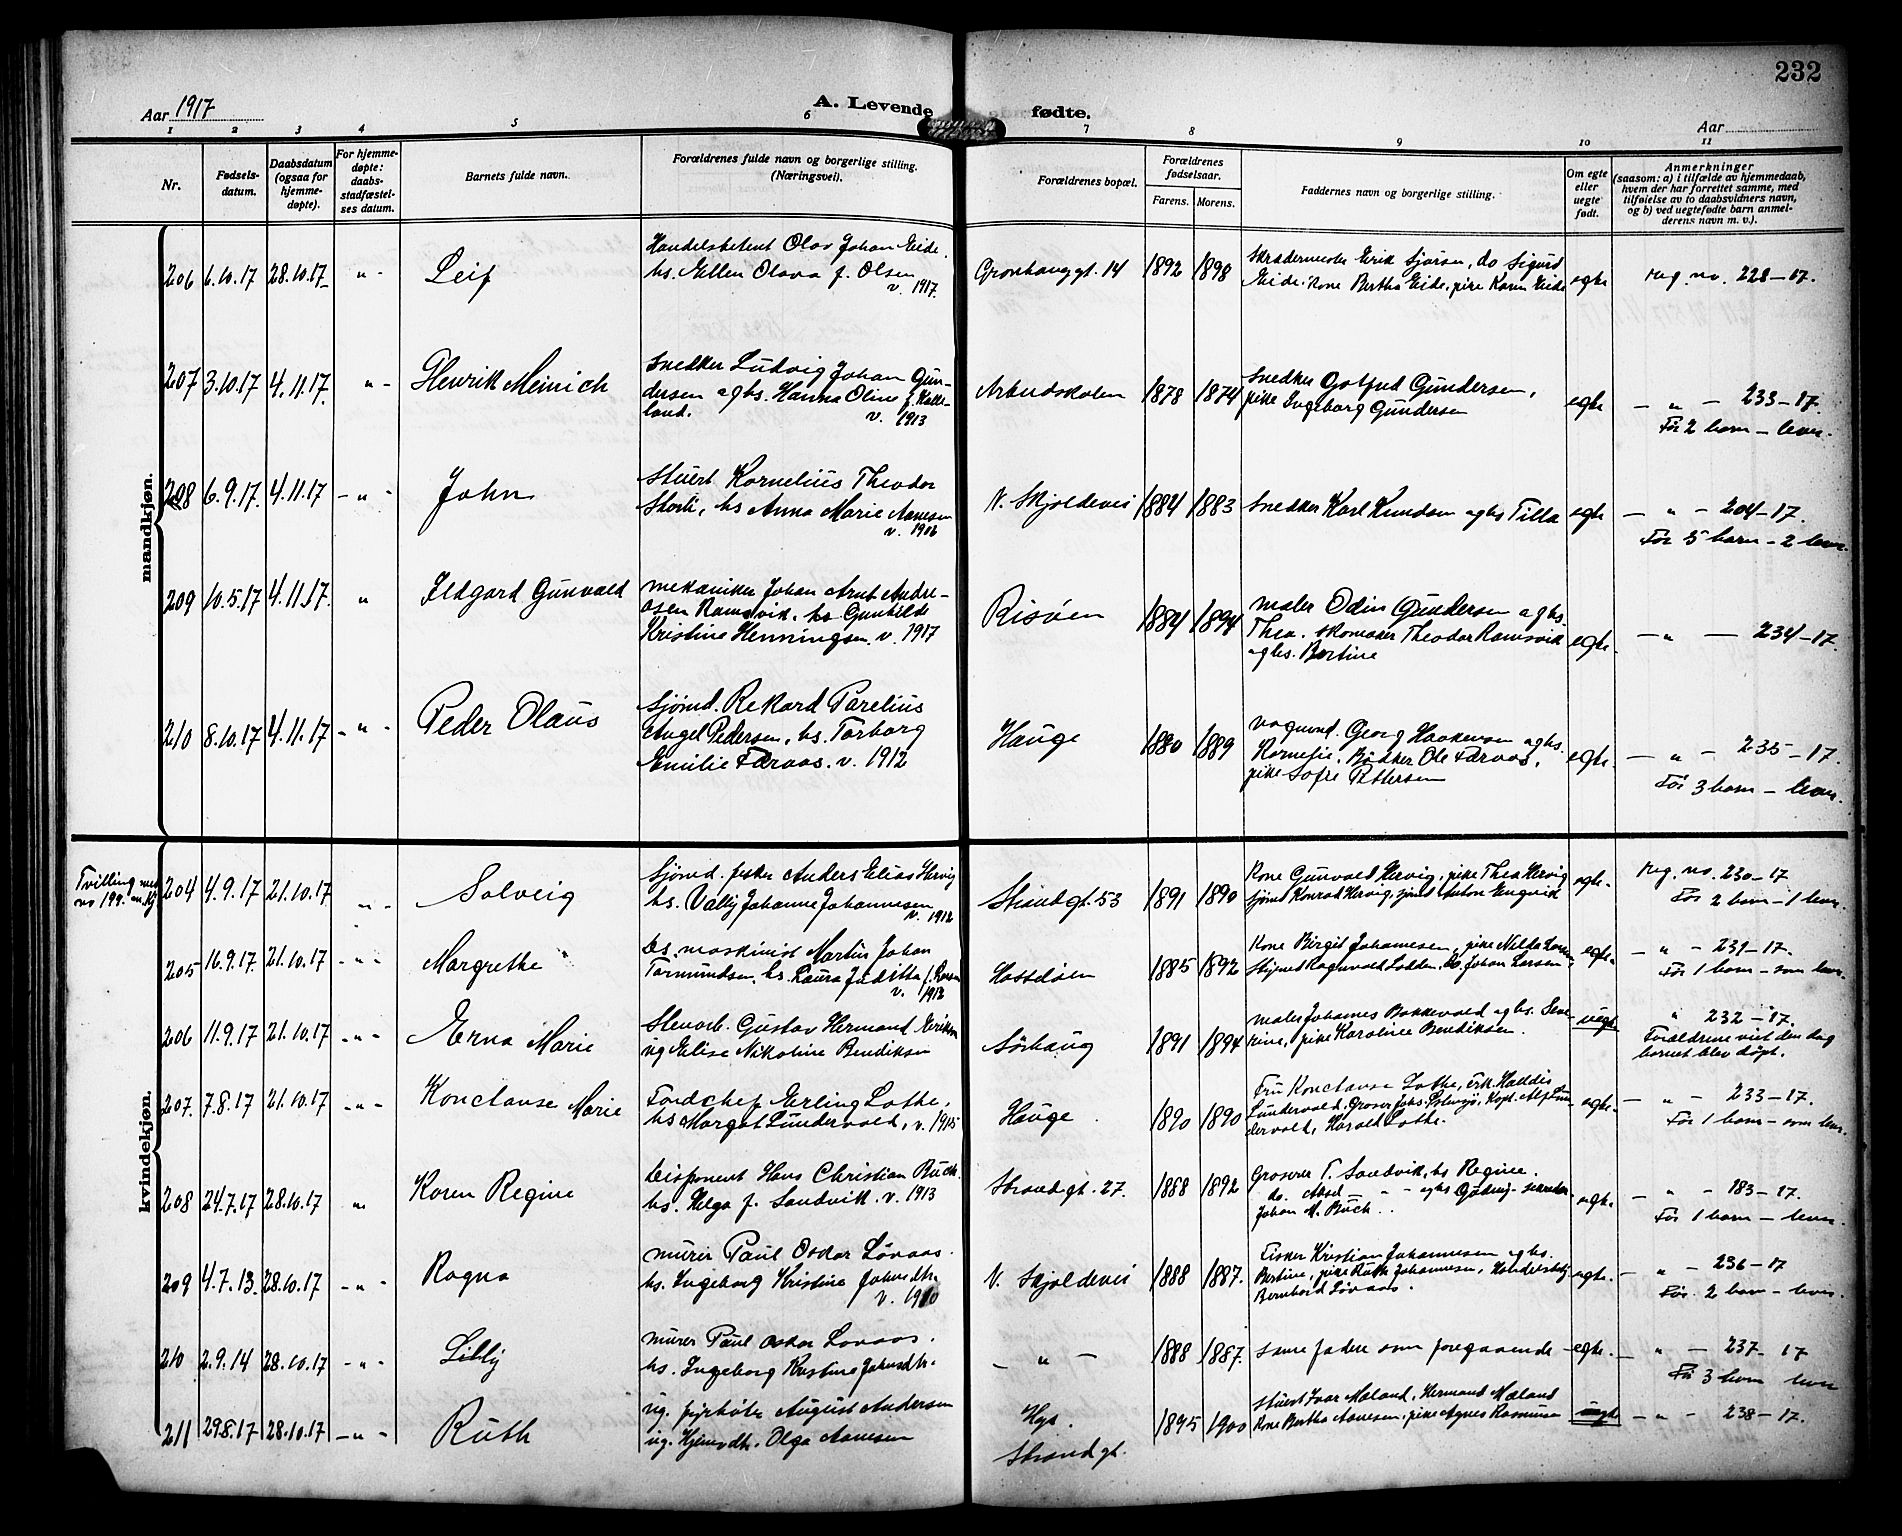 232
Aar 1917
A. Levende fødte.
Aar
1 2 3 4 5 6 7 8 9 10 11
Nr.
Fødsels-
datum.
Daabsdatum
(ogsaa for
hjemme-
døpte).
For hjemme-
døpte:
daabs-
stadfæstel-
ses datum.
Barnets fulde navn.
Forældrenes fulde navn og borgerlige stilling.
(Næringsvei).
Forældrenes bopæl.
Forældrenes
fødselsaar.
Farens. Morens.
Faddernes navn og borgerlige stilling.
Om egte
eller
uegte
født.
Anmerkninger
(saasom: a) i tilfælde av hjemmedaab,
hvem der har forrettet samme, med
tilføielse av to daabsvidners navn,
og b) ved uegtefødte barn anmel-
derens navn m. v.).
mandkjøn.
206 6.10.17 28.10.17 " Leif
Handelsbetient Olav Johan Eide.
hs. Ellen Olava f. Olsen
v. 1917.
Gronhauggt. 14 1892 1898
Skrædermester Erik Sjørsen, do Sigurd
Eide. Kone Bertha Eide, pike Karen Eide
egte reg. no. 228-17.
207 3.10.17 4.11.17. " - Henrik Meinich
Snedker Ludvig Johan Gun-
dersen og hs. Hanna Oline f. Kalle-
land. v. 1913
Arbeidsskolen 1878 1874
Snedker Gotfred Gundersen,
pike Ingeborg Gundersen
egte - " - 233-17.
Før 2 barn - lever.
208 6.9.17. 4.11.17 - " - John
Stuert Kornelius Theodor
Stork, hs Anna Marie Aanesen
v. 1906
N. Skjoldevei 1884 1883
Snedker Karl Knudsen og hs Tilla
egte - " - 204-17.
Før 5 barn - 2 lever.
209 10.5.17 4.11.17. " Ildgard Gunvald
mekaniker Johan Arnt Andre-
asen Ramsvik. hs Gunhilde
Kristine Henningsen. v. 1917
Risøen 1884 1894
maler Odin Gundersen og hs.
Thea. skomaker Theodor Ramsvik
og hs. Bertine
egte. - " - 234-17.
210 8.10.17 4.11.17 - " - Peder Olaus
Sjømd. Rekard Parelius
Angel Pedersen, hs. Torborg
Emilie Færaas. v. 1912
Hauge 1880 1889
vognmd. Georg Haakensen og hs.
Kornelie. Bødker Ole Færaas,
pike Sofie Pettersen
egte. - " - 235-17.
Før 3 barn - lever.
kvindekjøn.
Tvilling med
no 199.
204 4.9.17 21.10.17 " - Solveig
Sjømd. fisker Anders Elias Hervig
hs. Vally Johanne Johannesen
v. 1912
Strandgt. 53 1891 1890
Kone Gunvald Hervig, pike Thea Hervig
sjømd Konrad Hervig, sjmd Anton Engvid
egte. reg. no. 230-17
Før 2 barn - 1 lever.
205 16.9.17. 21.10.17 - " - Margrethe
Ds. maskinist Martin Johan
Tormundsen, hs. Laura Juditha f.
v. 1912
Hasseløen 1885 1892
Kone Birgit Johannesen, pike Nilla
Stymd Ragnvald Lodden, do. Johan Larsen
egte. - " - 231-17.
Før 1 barn - som lever.
206 11.9.17 21.10.17 - " - Erna Marie
Stenarb. Gustav Hermand Eriksen
ug Elise Nikoline Bendiksen
Sørhaug 1891 1894
maler Johannes Bakkevold og hs. Seve-
rine, pike Karoline Bendiksen.
uegte " 232-17.
Forældrene viet den dag
barnet blev døpt.
207. 7.8.17 21.10.17 - " - Konstanse Marie
Fondchef Erling Lothe,
hs Margot Lundervold, v. 1915
Hauge 1890 1890
Fru Konstanse Lothe, Frk. Haldis
Lundervold, Groser Johs. Kapt. Alf Lun-
dervold, Harald Lothe.
egte. - " - 233-17.
Før 1 barn - som lever.
208 24.7.17 28.10.17 " Karen Regine
Disponent Hans Christian Buck.
hs. Helga f. Sandvik. v. 1913
Strandgt. 27. 1888 1892
Groserer T. Sandvik, hs Regine.
do. Aksel - " - og hs
Johan M. Buck
egte. - " - 183-17.
Før 1 barn - lever.
209 4.7.13. 28.10.17 - " - Ragna
murer Paul Oskar Løvaas.
hs. Ingeborg Kristine Johnsdtr.
v. 1910
N. Skjoldevei 1888 1887.
Fisker Kristian Johannesen og hs.
Bertine, pike Ruth Johannesen,
Bernhard Løvaas.
egte. - " - 236-17
Før. 2 barn - lever.
210 2.9.14 28.10.17 - " - Lilly
murer Paul Oskar Lovaas.
hs. Ingeborg Kristine Johnsdtr.
- " - 1888 1887.
samme faddere som foregaaende
egte. - " - 237-17
Før 3 barn lever
211 29.8.17 28.10.17 - " - Ruth
ug. fyrbøter August Andersen
ug. Hjemvdtr. Olga Aanesen
Hgs.
Strandgt.
1895 1900
stuert Ivar Mæland, Hermand Mæland
Kone Bertha Aanesen, pike Agnes Rasmusen
uegte - " - 238-17.